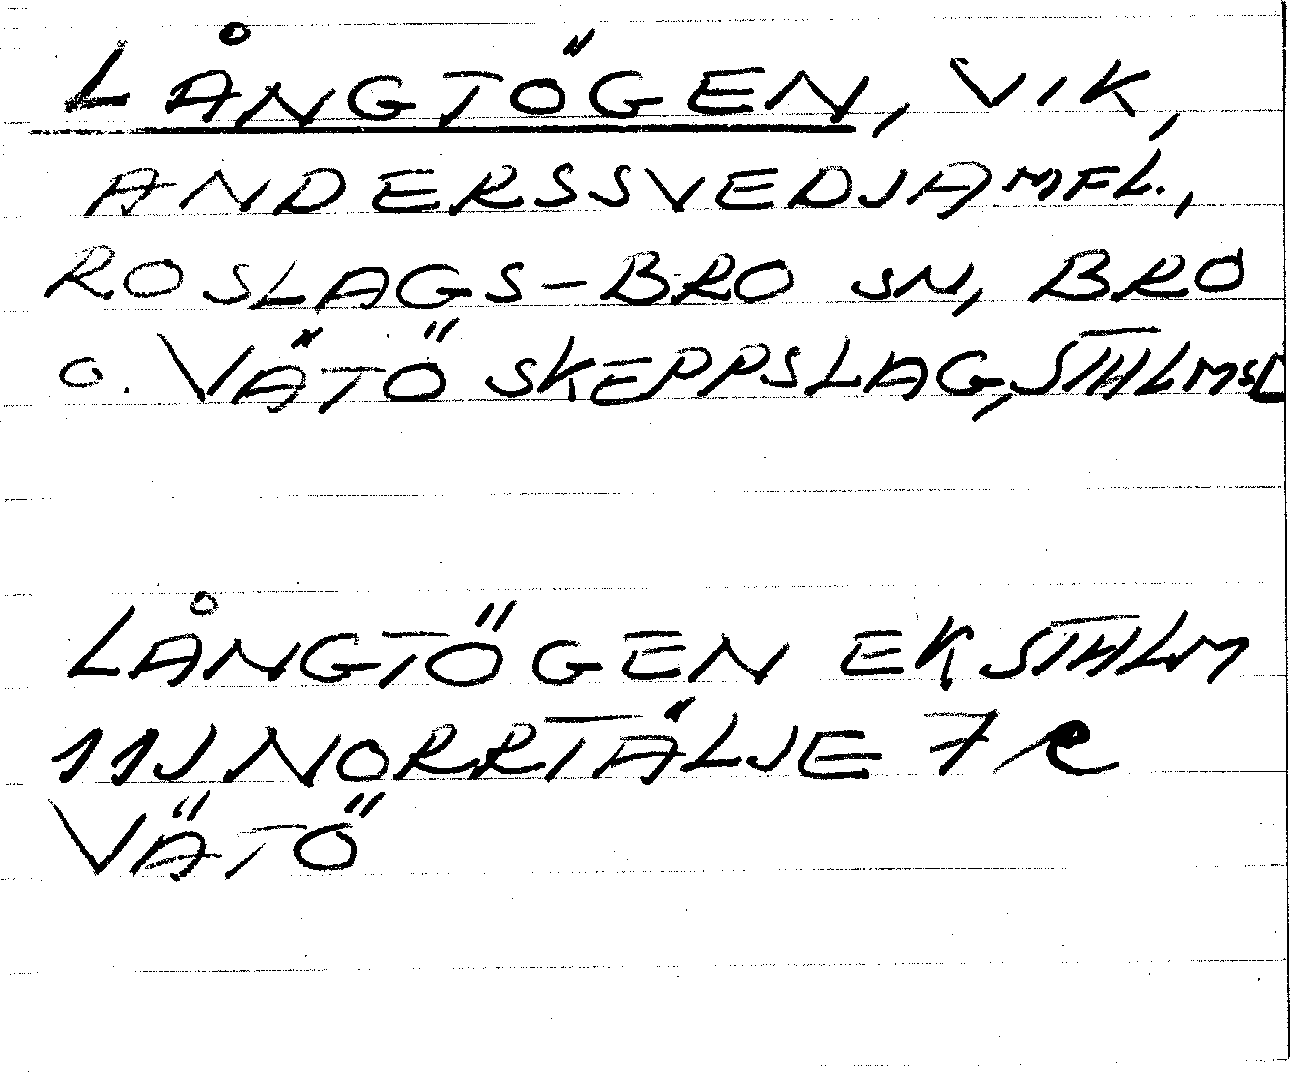 LÅNGTÖGEN, VIK,
ANDERSSVEDJA MFL.,
ROSLAGS-BRO SN, BRO
O. VÄTÖ SKEPPSLAG, STHLMSL
LÅNGTÖGEN EK STHLM
11J NORRTÄLJE 7 e
VÄTÖ